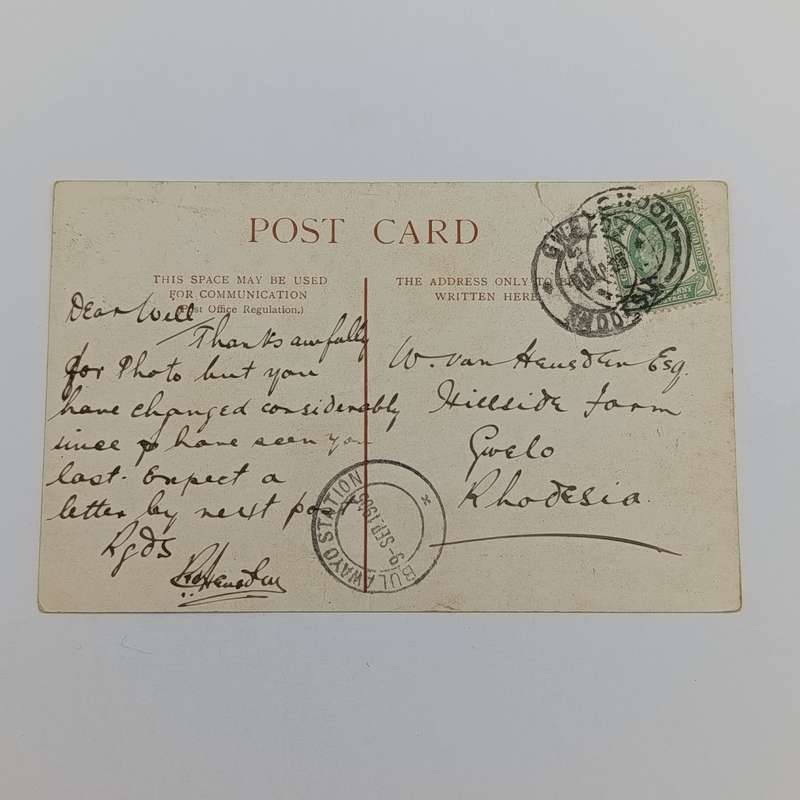 POST CARD
THIS SPACE MAY BE USED
FOR COMMUNICATION
(Post Office Regulation.)
THE ADDRESS ONLY TO
WRITTEN HERE
Dear Will
Thanks awfully
for Photo but you
have changed considerably
since I have seen you
last. Expect a
letter by next post
Rgds
W. van Heusden Esq.
Hillside Farm
Gwelo
Rhodesia.
GWELO
RHODESIA
LONDON
BULAWAYO STATION
9-SEP.190